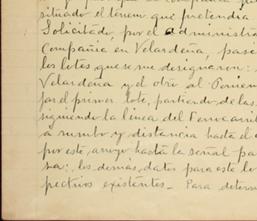 situado el terreno que pretendía
Solicitado, por el administra
Compañía en Velardeña, pasé
los lotes que se me designaron:
Velardeña y el otro al Ponien
jar el primer lote, partiendo de las
siguiendo la línea del Ferrocarril
a rumbo y distancia hasta el a
por este, arroyo hasta la señal pa
sa: los demás, datos para este lo
pectivos existentes. Para determ